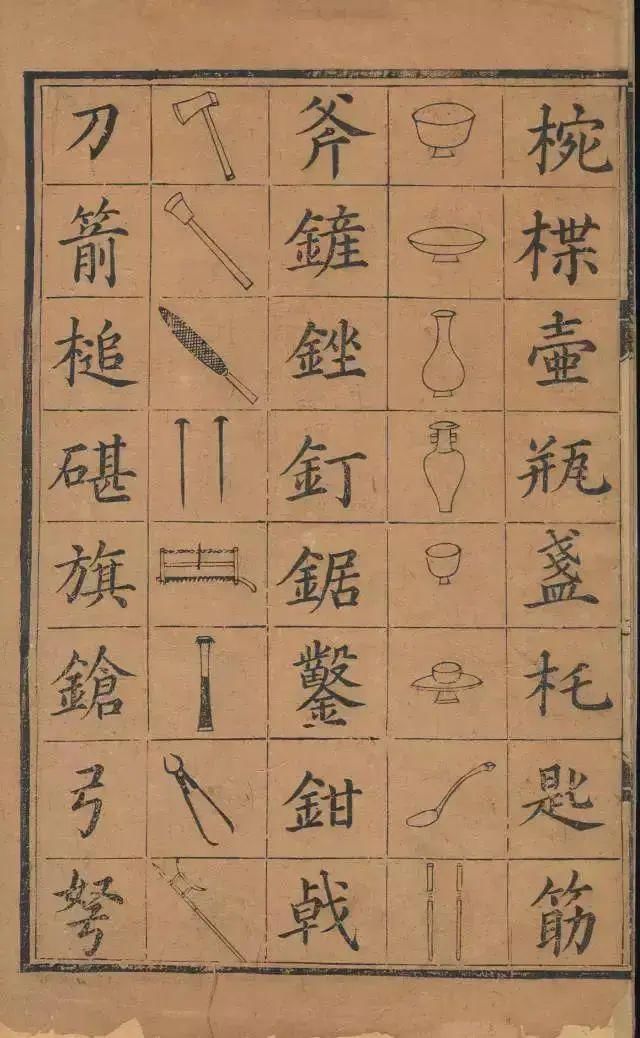 椀楪壷瓶盞杔匙筋
斧鏟銼釘鋸鑿鉗戟
刀箭槌碪旗鎗弓弩